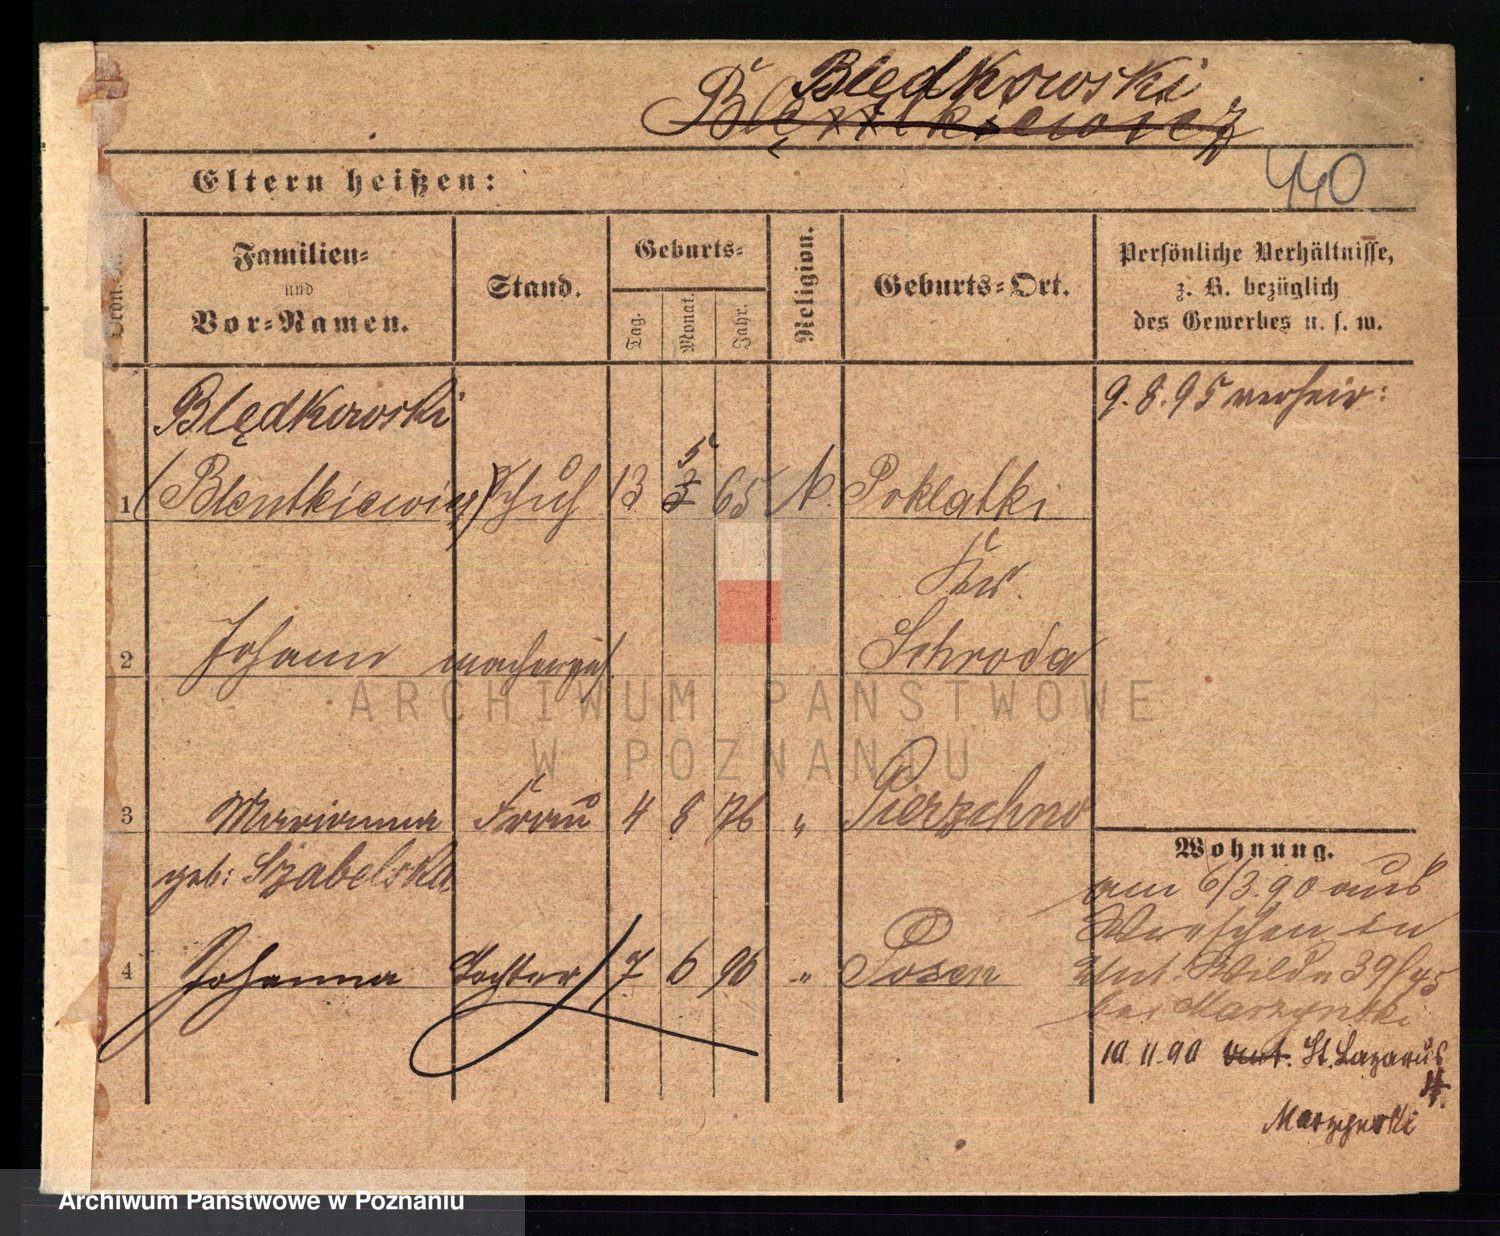 Błędkowski
Błęntkiewicz
440
Eltern heißen:
Ordn.-Nr.
Familien-
und
Vor-Namen.
Stand.
Geburts-
Tag.
Monat.
Jahr.
Religion.
Geburts-Ort.
Persönliche Verhältnisse,
z. B. bezüglich
des Gewerbes u. s. w.
Błędkowski
9. 8. 95 verheir:
1 (Blentkiewicz) Schuh 13 5 65 k. Poklatki
Kr.
2 Johann macherges. Schroda
3 Marianna Frau 4 8 76 " Pierzchno
geb: Szabelska
4 Johanna Tochter 7 6 96 " Posen
Wohnung.
am 6/3. 90 aus
Wreschen in
Unt. Wilda 39
bei Marzynski
10. 11. 90 Unt. St. Lazarus
4.
Marzynski
ARCHIWUM PAŃSTWOWE
W POZNANIU
Archiwum Państwowe w Poznaniu